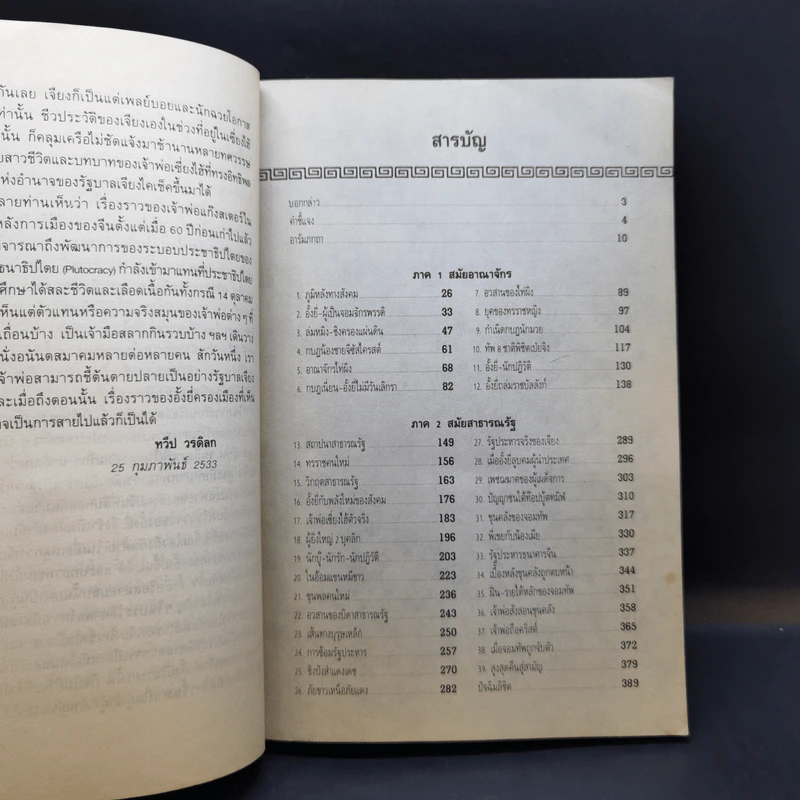 กันเลย เจียงก็เป็นแต่เพลย์บอยและนักฉวยโอกาส
ท่านั้น ชีวประวัติของเจียงเองในช่วงที่อยู่ในเซี่ยงไฮ้
นั้น ก็คลุมเครือไม่ชัดแจ้งมาช้านานหลายทศวรรษ
ยสาวชีวิตและบทบาทของเจ้าพ่อเซี่ยงไฮ้ที่ทรงอิทธิพล
ห่งอำนาจของรัฐบาลเจียงไคเช็คขึ้นมาได้
ลายท่านเห็นว่า เรื่องราวของเจ้าพ่อแก๊งสเตอร์ใน
หลังการเมืองของจีนตั้งแต่เมื่อ 60 ปีก่อนเก่าไปแล้ว
จารณาถึงพัฒนาการของระบอบประชาธิปไตยของ
ธนาธิปไตย (Plutocracy) กำลังเข้ามาแทนที่ประชาธิปไตย
ศึกษาได้สละชีวิตและเลือดเนื้อกันทั้งกรณี 14 ตุลาคม
เห็นแต่ตัวแทนหรือความจริงสมุนของเจ้าพ่อต่าง ๆ ที่
เถื่อนบ้าง เป็นเจ้ามือสลากกินรวบบ้าง ฯลฯ เดินวาง
นั่งอนันตสมาคมหลายต่อหลายคน สักวันหนึ่ง เรา
จ้าพ่อสามารถชี้ต้นตายปลายเป็นอย่างรัฐบาลเจียง
ละเมื่อถึงตอนนั้น เรื่องราวของอั้งยี่ครองเมืองที่เห็น
าจเป็นการสายไปแล้วก็เป็นได้
ทวีป วรดิลก
25 กุมภาพันธ์ 2533
สารบัญ
บอกกล่าว 3
คำชี้แจง 4
อารัมภกถา 10
ภาค 1 สมัยอาณาจักร
1. ภูมิหลังทางสังคม 26
2. อั้งยี่-ผู้เป็นจอมจักรพรรดิ 33
3. ล่มหมิง-ชิงครองแผ่นดิน 47
4. กบฏน้องชายจีซัสไครสต์ 61
5. อาณาจักรไท่ผิง 68
6. กบฏเนี่ยน-อั้งยี่ไม่มีวันเลิกรา 82
7. อวสานของไท่ผิง 89
8. ยุคของทรราชหญิง 97
9. กำเนิดกบฏนักมวย 104
10. ทัพ 8 ชาติพิชิตเปยจิง 117
11. อั้งยี่-นักปฏิวัติ 130
12. อั้งยี่ถล่มราชบัลลังก์ 138
ภาค 2 สมัยสาธารณรัฐ
13. สถาปนาสาธารณรัฐ 149
14. ทรราชคนใหม่ 156
15. วิกฤตสาธารณรัฐ 163
16. อั้งยี่กับพลังใหม่ของสังคม 176
17. เจ้าพ่อเซี่ยงไฮ้ตัวจริง 183
18. ผู้ยิ่งใหญ่ 2 บุคลิก 196
19. นักบู๊-นักรัก-นักปฏิวัติ 203
20. ในอ้อมแขนหมีขาว 223
21. ขุนพลคนใหม่ 236
22. อวสานของบิดาสาธารณรัฐ 243
23. เส้นทางบุรุษเหล็ก 250
24. การซ้อมรัฐประหาร 257
25. ชิงปังสำแดงเดช 270
26. ภัยขาวเหนือภัยแดง 282
27. รัฐประหารจริงของเจียง 289
28. เมื่ออั้งยี่ลูบคมผู้นำประเทศ 296
29. เพชฌฆาตของผู้เผด็จการ 303
30. ปัญญาชนใต้ท็อปบู๊ตทมิฬ 310
31. ขุนคลังของจอมทัพ 317
32. พี่เขยกับน้องเมีย 330
33. รัฐประหารธนาคารจีน 337
34. เบื้องหลังขุนคลังถูกตบหน้า 344
35. ฝิ่น-รายได้หลักของจอมทัพ 351
36. เจ้าพ่อสั่งสอนขุนคลัง 358
37. เจ้าพ่อถือคริสต์ 365
38. เมื่อจอมทัพถูกจับตัว 372
39. สูงสุดคืนสู่สามัญ 379
ปัจฉิมลิขิต 389